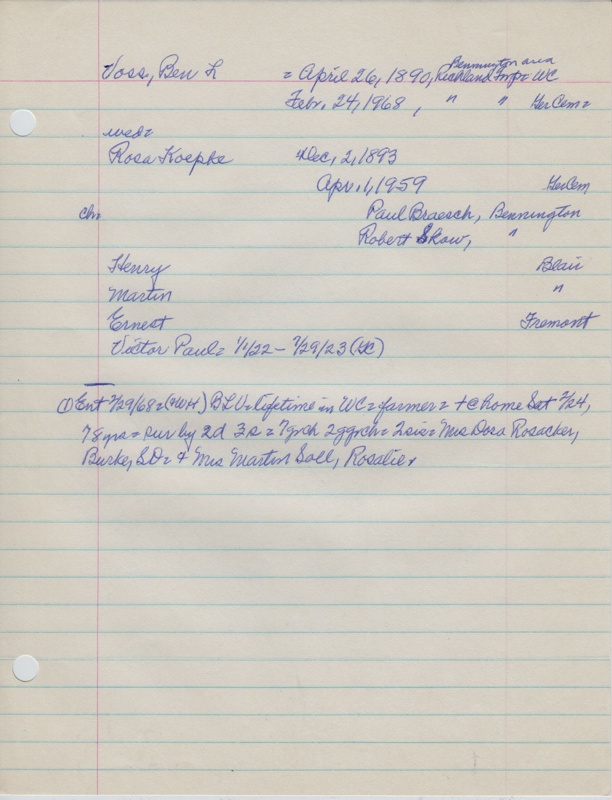 Bennington area
Voss, Ben L = April 26, 1890, Richland Twp = WC
Febr. 24, 1968, " " GerCem =
wed =
Rosa Koepke Dec, 2, 1893
Apr. 1, 1959 GerCem
chn Paul Braesch, Bennington
Robert Skow, "
Henry Blair
Martin "
Ernest Fremont
Victor Paul = 1/1/22 – 7/29/23 (GC)
① Ent 2/29/68 = BLV = lifetime in WC = farmer = + @ home Sat 2/24,
78 yrs = sur by 2d 3s = 7grch 2ggrch = 2sis = Mrs Dora Rosacker,
Burke, SD = & Mrs Martin Soll, Rosalie x